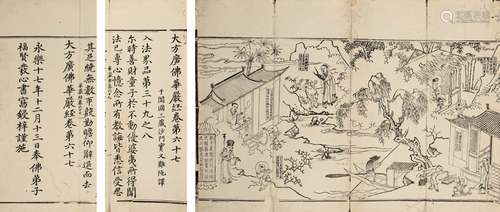 大方廣佛華嚴經卷第六十七
于闐國三藏沙門實叉難陀譯
入法界品第三十九之八
尒時善財童子於不動優婆夷所得聞
法已專心憶念所有教誨皆悉信受思
其足繞無數帀慇懃瞻仰辭退而去
大方廣佛華嚴經卷第六十七
永樂十七年十二月十三日奉佛弟子
福賢發心書寫鋟梓謹施